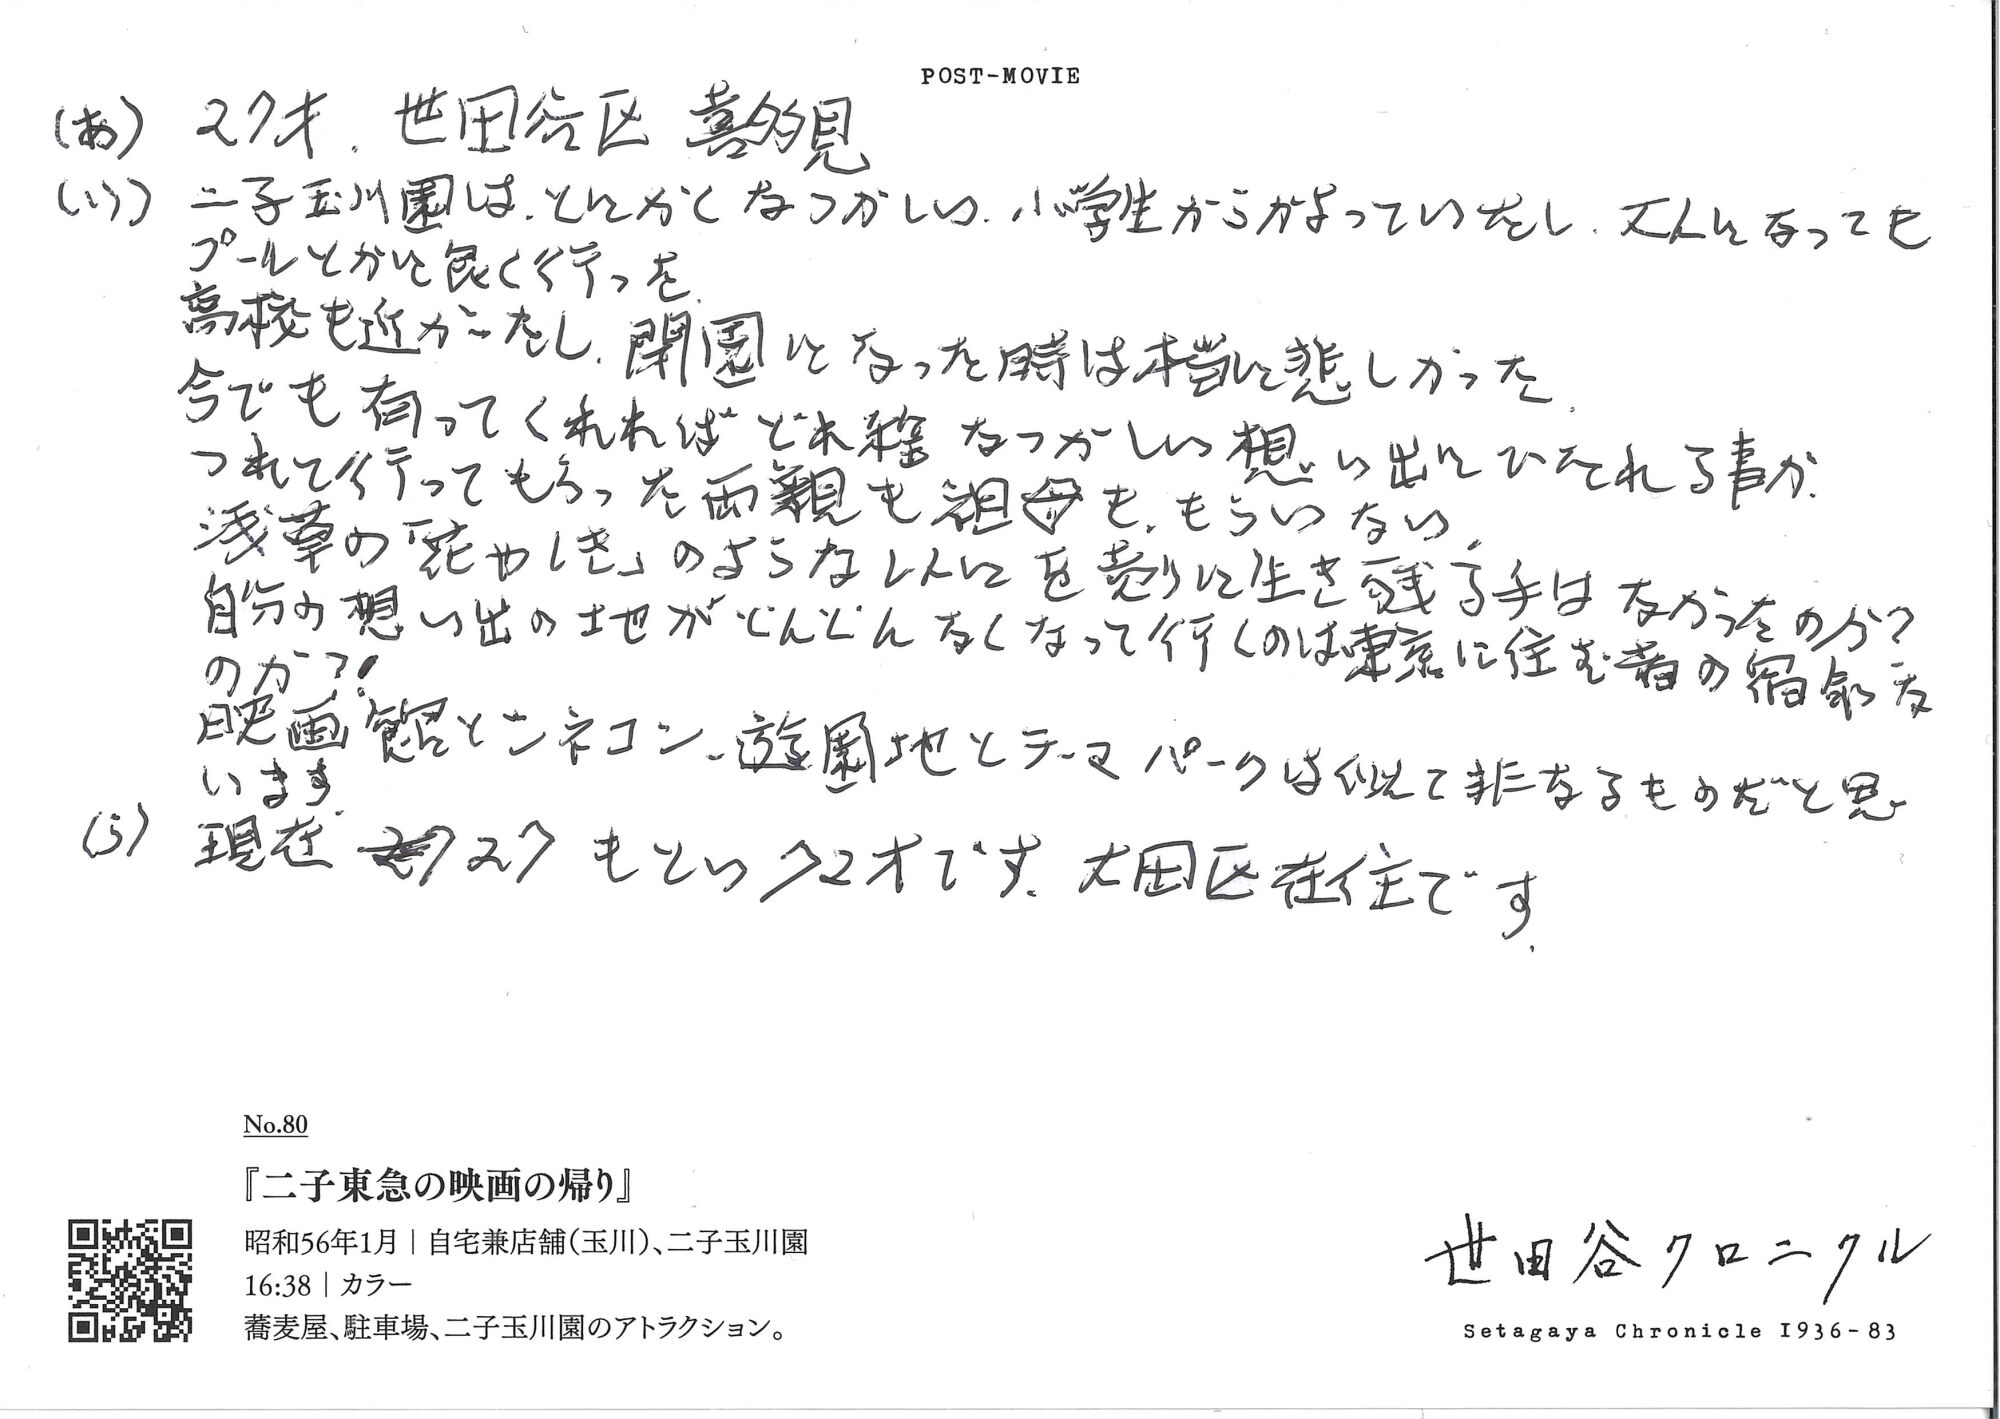 POST-MOVIE
(あ) 27才. 世田谷区 喜多見
(い) 二子玉川園は、とにかくなつかしい、小学生からかよっていたし、大人になっても
プールとかに良く行った.
高校も近かったし、閉園になった時は本当に悲しかった.
今でも有ってくれればどれ程なつかしい想い出にひたれる事か.
つれて行ってもらった両親も祖母も、もういない.
浅草の「花やしき」のようなレトロを売りに生き残る手はなかったのか?
自分の想い出の地がどんどんなくなって行くのは東京に住む者の宿命な
のか?!
映画館とシネコン、遊園地とテーマパークは似て非なるものだと思
います.
(う) 現在 27 もとい 72才です. 大田区在住です.
No.80
『二子東急の映画の帰り』
昭和56年1月 | 自宅兼店舗(玉川)、二子玉川園
16:38 | カラー
蕎麦屋、駐車場、二子玉川園のアトラクション。
世田谷クロニクル
Setagaya Chronicle 1936-83